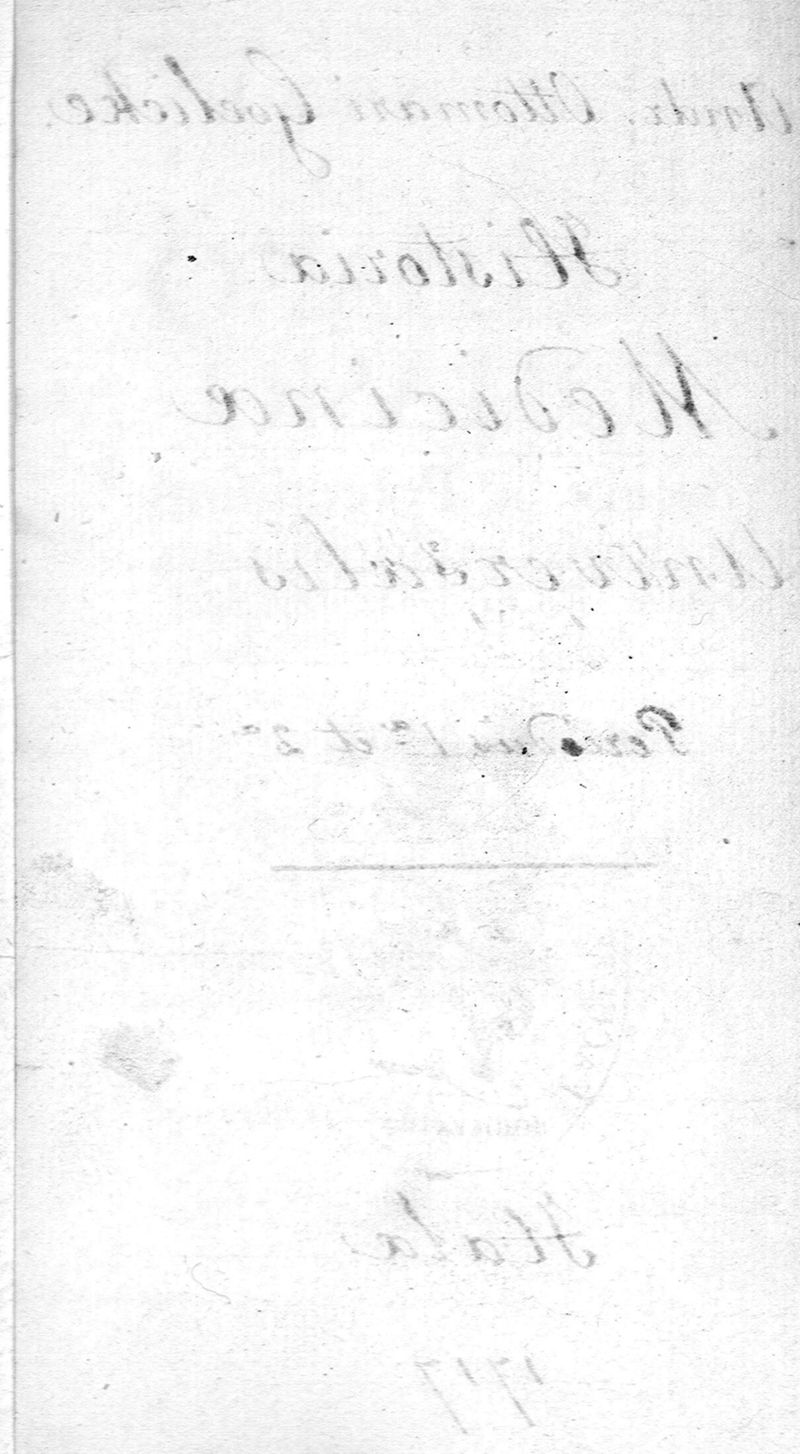 Andr. Ottomari Goelicke.
Historia
Medicinæ
Universalis
Periodus 1ª et 2ª
Hala
1717